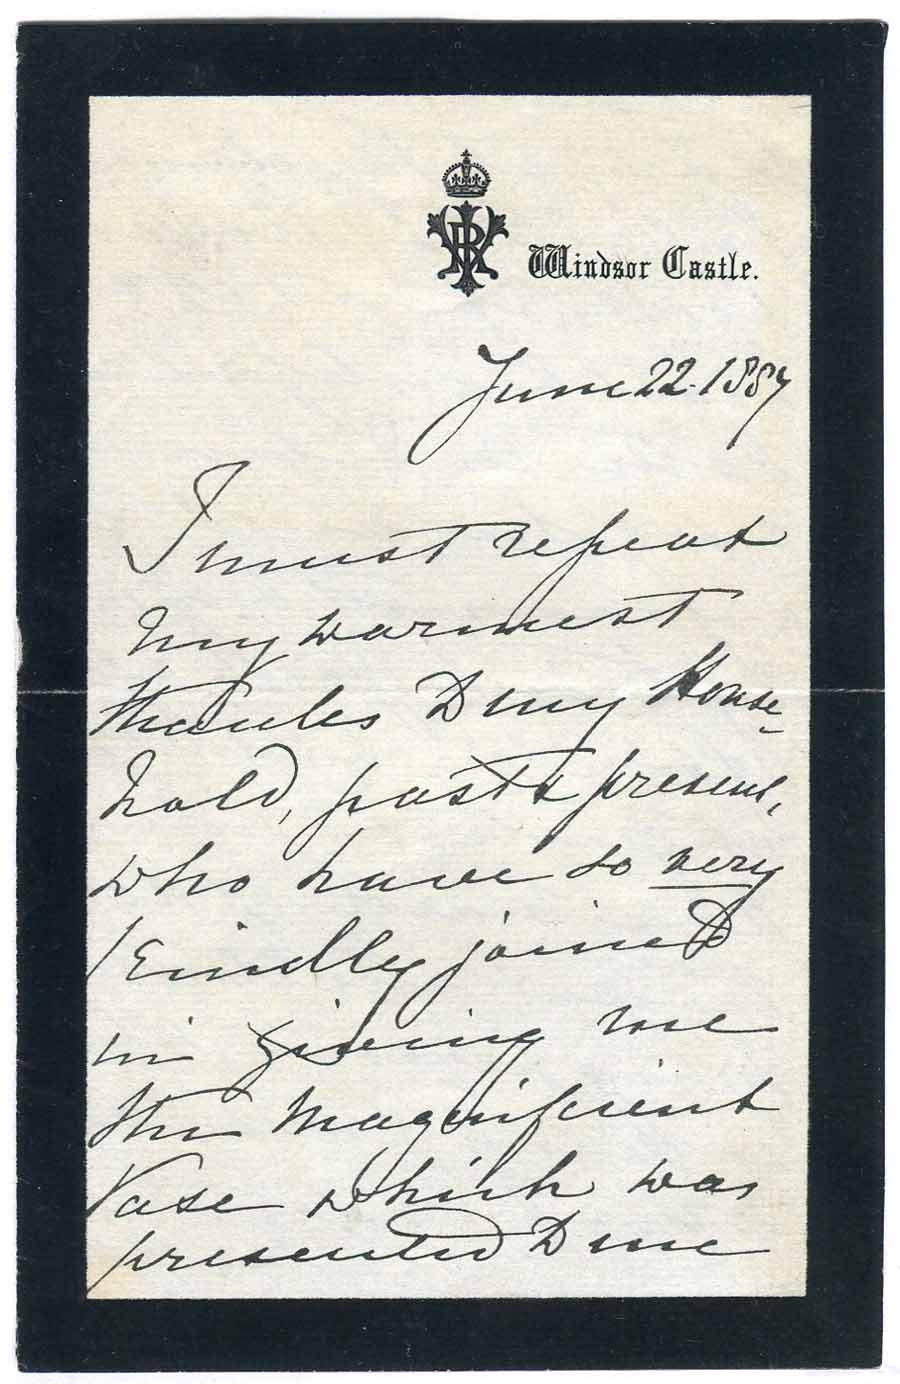 VRI
Windsor Castle.
June 22. 1887
I must repeat
my warmest
thanks to my House-
hold, past & present,
who have so very
kindly joined
in giving me
the magnificent
Vase which was
presented to me